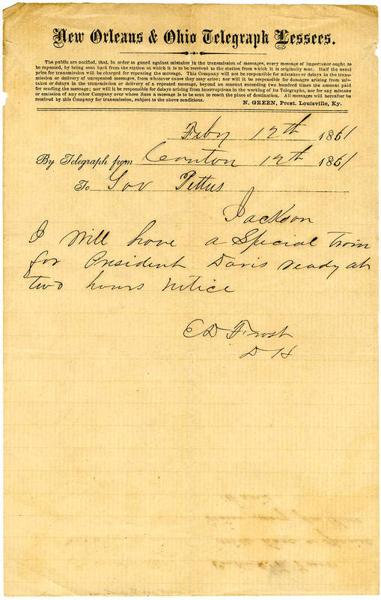 New Orleans & Ohio Telegraph Lessees.
The public are notified, that, in order to guard against mistakes in the transmission of messages, every message of importance ought to
be repeated, by being sent back from the station which it is to be received to the station from which it is originally sent. Half the usual
price for transmission will be charged for repeating the message. This Company will not be responsible for mistakes or delays in the trans-
mission or delivery of unrepeated messages, from whatever cause they may arise; nor will it be responsible for damages arising from mis-
takes or delays in the transmission or delivery of a repeated message, beyond an amount exceeding two hundred times the amount paid
for sending the message; nor will it be responsible for delays arising from interruptions in the working of its Telegraphs, nor for any mistake
or omission of any other Company over whose lines a message is to be sent to reach the place of destination. All messages will hereafter be
received by this Company for transmission, subject to the above conditions.
N. GREEN, Prest. Louisville, Ky.
Feby 12th 1861
By Telegraph from Canton 12th 1861
To Gov Pettus
Jackson
I Will have a Special Train
for President Davis ready at
two hours notice
E D Frost
D H